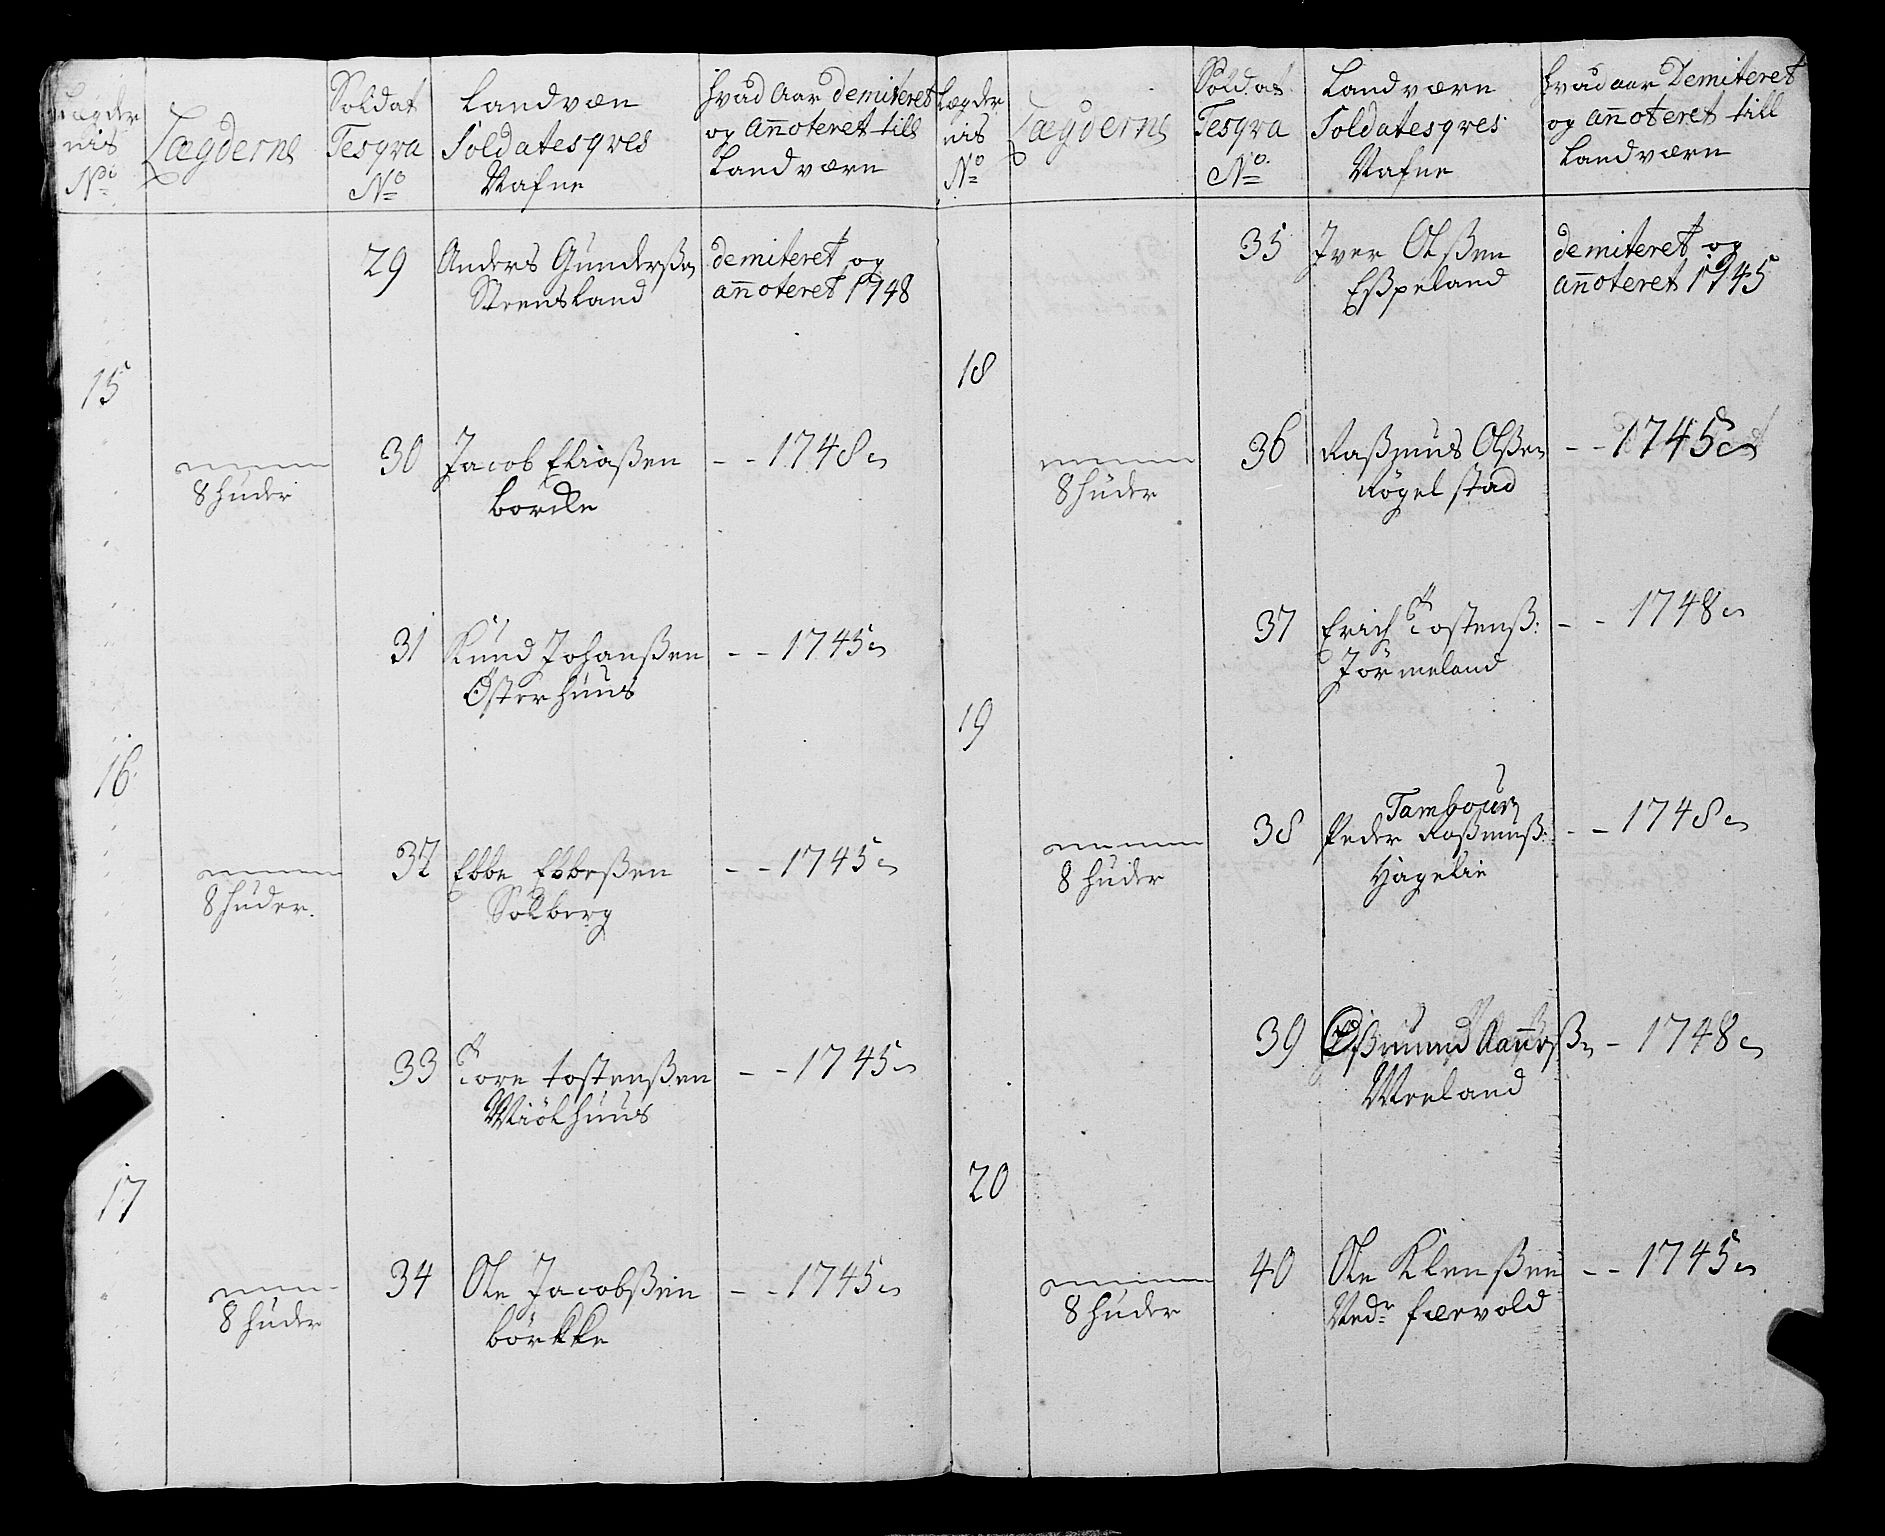 Lægder
nis
No
Lægderne
Soldat
Tesqra
No
Landvæn
Soldatesqves
Nafne
hvad Aar demiteret
og añoteret till
Landværn
29
Anders Gunderßen
Steensland
demiteret og
añoteret 1748
15
8 huder
30
Jacob Eliaßen
- - 1748
31
Knud Johanßen
Østerhuus
- - 1745
16
8 huder.
32
Ebbe Ebbeßen
Solberg
- - 1745
33
Tore tostenßen
Miölhuus
- - 1745
17
8 huder
34
Ole Jacobßen
börkke
- - 1745
Lægder
nis
No
Lægderne
Soldat
Tesqra
No
Landværn
Soldatesqves
Nafne
hvad aar Demiteret
og añoteret till
Landværn
35
Iver Olßen
Eßpeland
demiteret og
añoteret 1745
18
8 huder
36
Raßmus Olßen
Rögelstad
- - 1745
37
Erich Tostenß:
Jörmeland
- - 1748
19
8 huder
38
Tambour
Peder Raßmuß:
Hagelie
- - 1748
39
Meeland
- 1748
20
8 huder
40
Ole
Nedr færvold
- - 1745